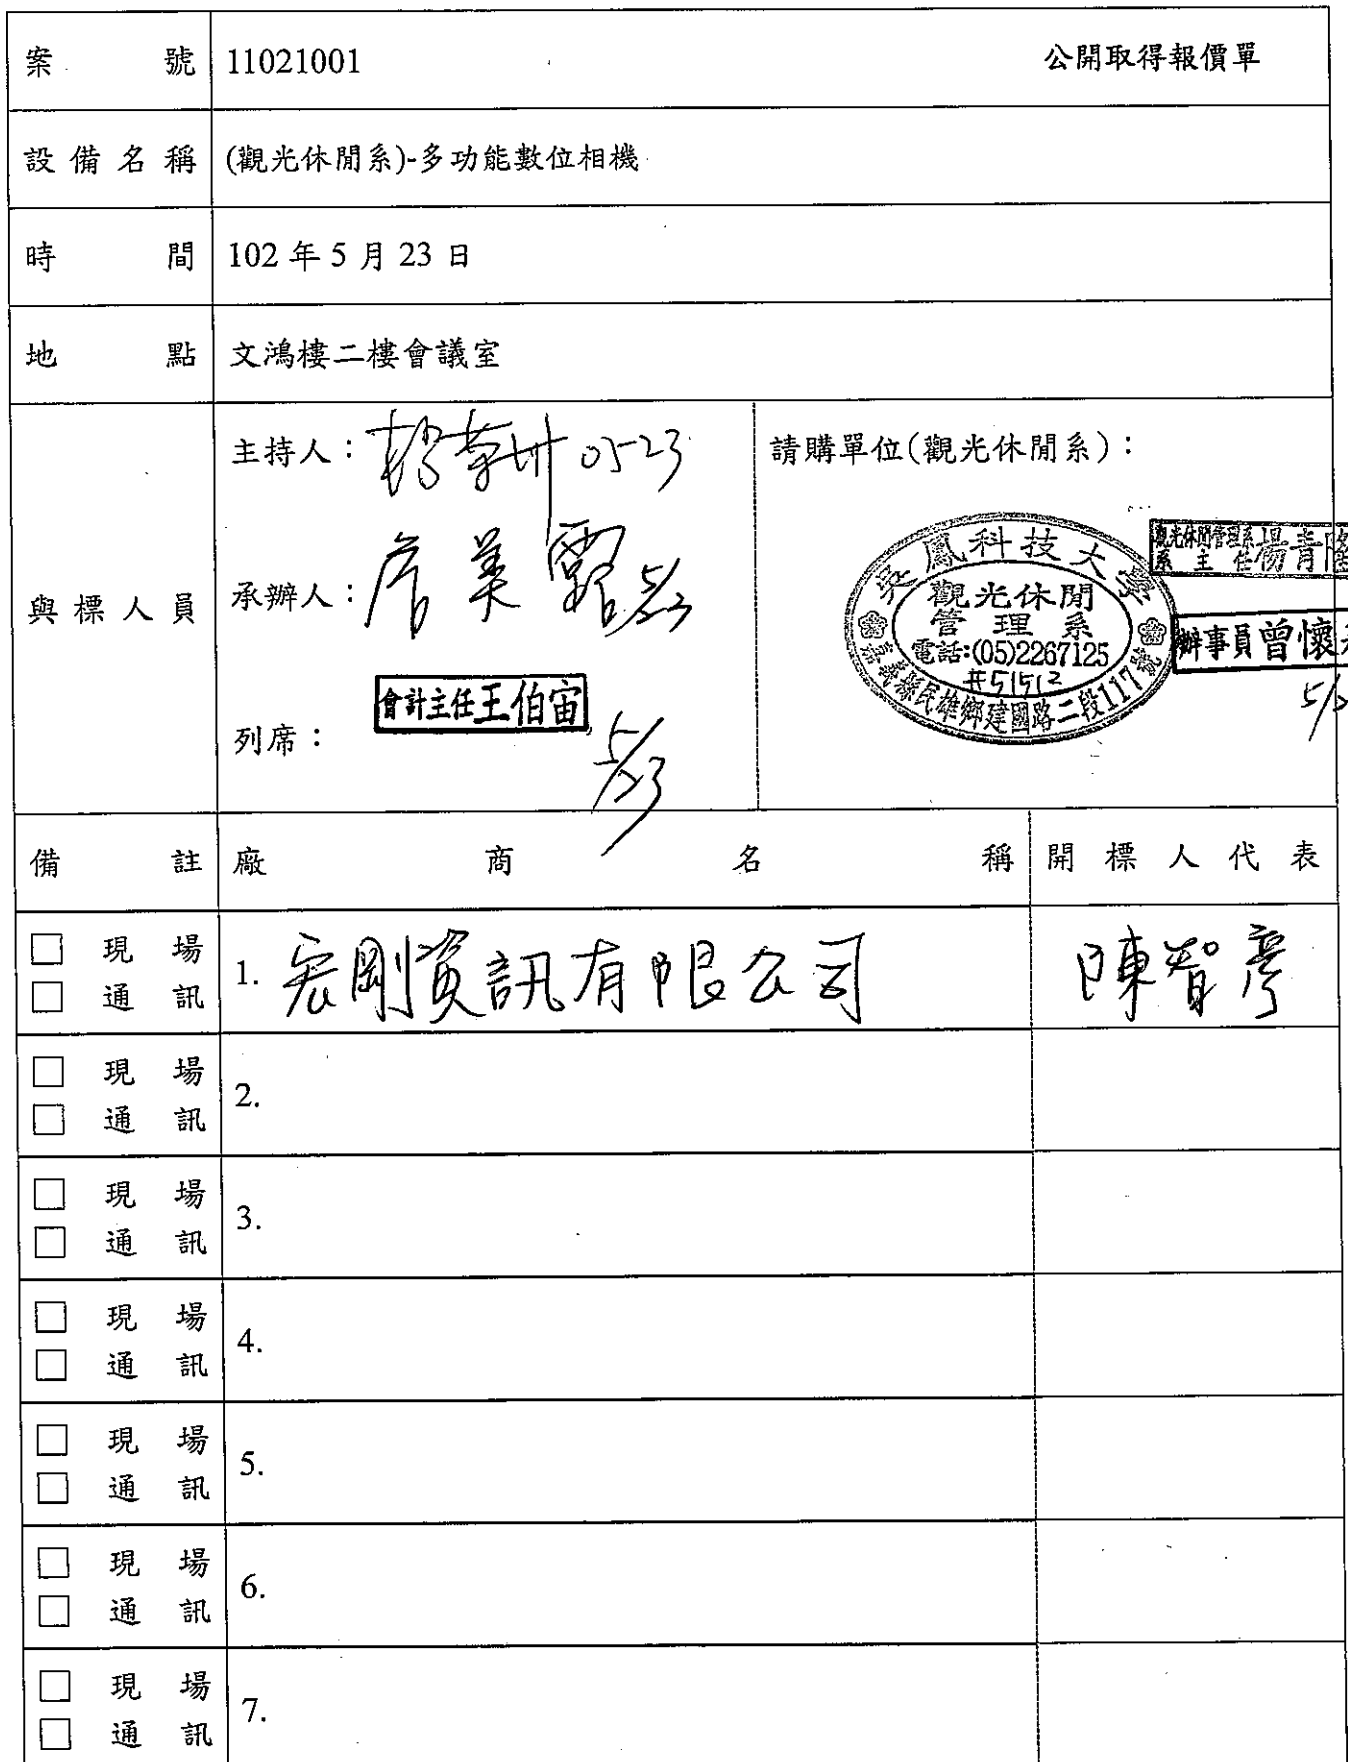 案號 11021001 公開取得報價單
設備名稱 (觀光休閒系)-多功能數位相機
時間 102 年 5 月 23 日
地點 文鴻樓二樓會議室
與標人員
主持人： 0523
承辦人： 詹美露 5/23
列席： 會計主任王伯宙 5/23
請購單位(觀光休閒系)：
吳鳳科技大學
觀光休閒
管理系
電話:(05)2267125
#51512
嘉義縣民雄鄉建國路二段117號
觀光休閒管理系
系主任 楊青隆
辦事員曾懷
備註 廠商名稱 開標人代表
□ 現場
□ 通訊
1. 宏剛資訊有限公司 陳智彥
□ 現場
□ 通訊
2.
□ 現場
□ 通訊
3.
□ 現場
□ 通訊
4.
□ 現場
□ 通訊
5.
□ 現場
□ 通訊
6.
□ 現場
□ 通訊
7.